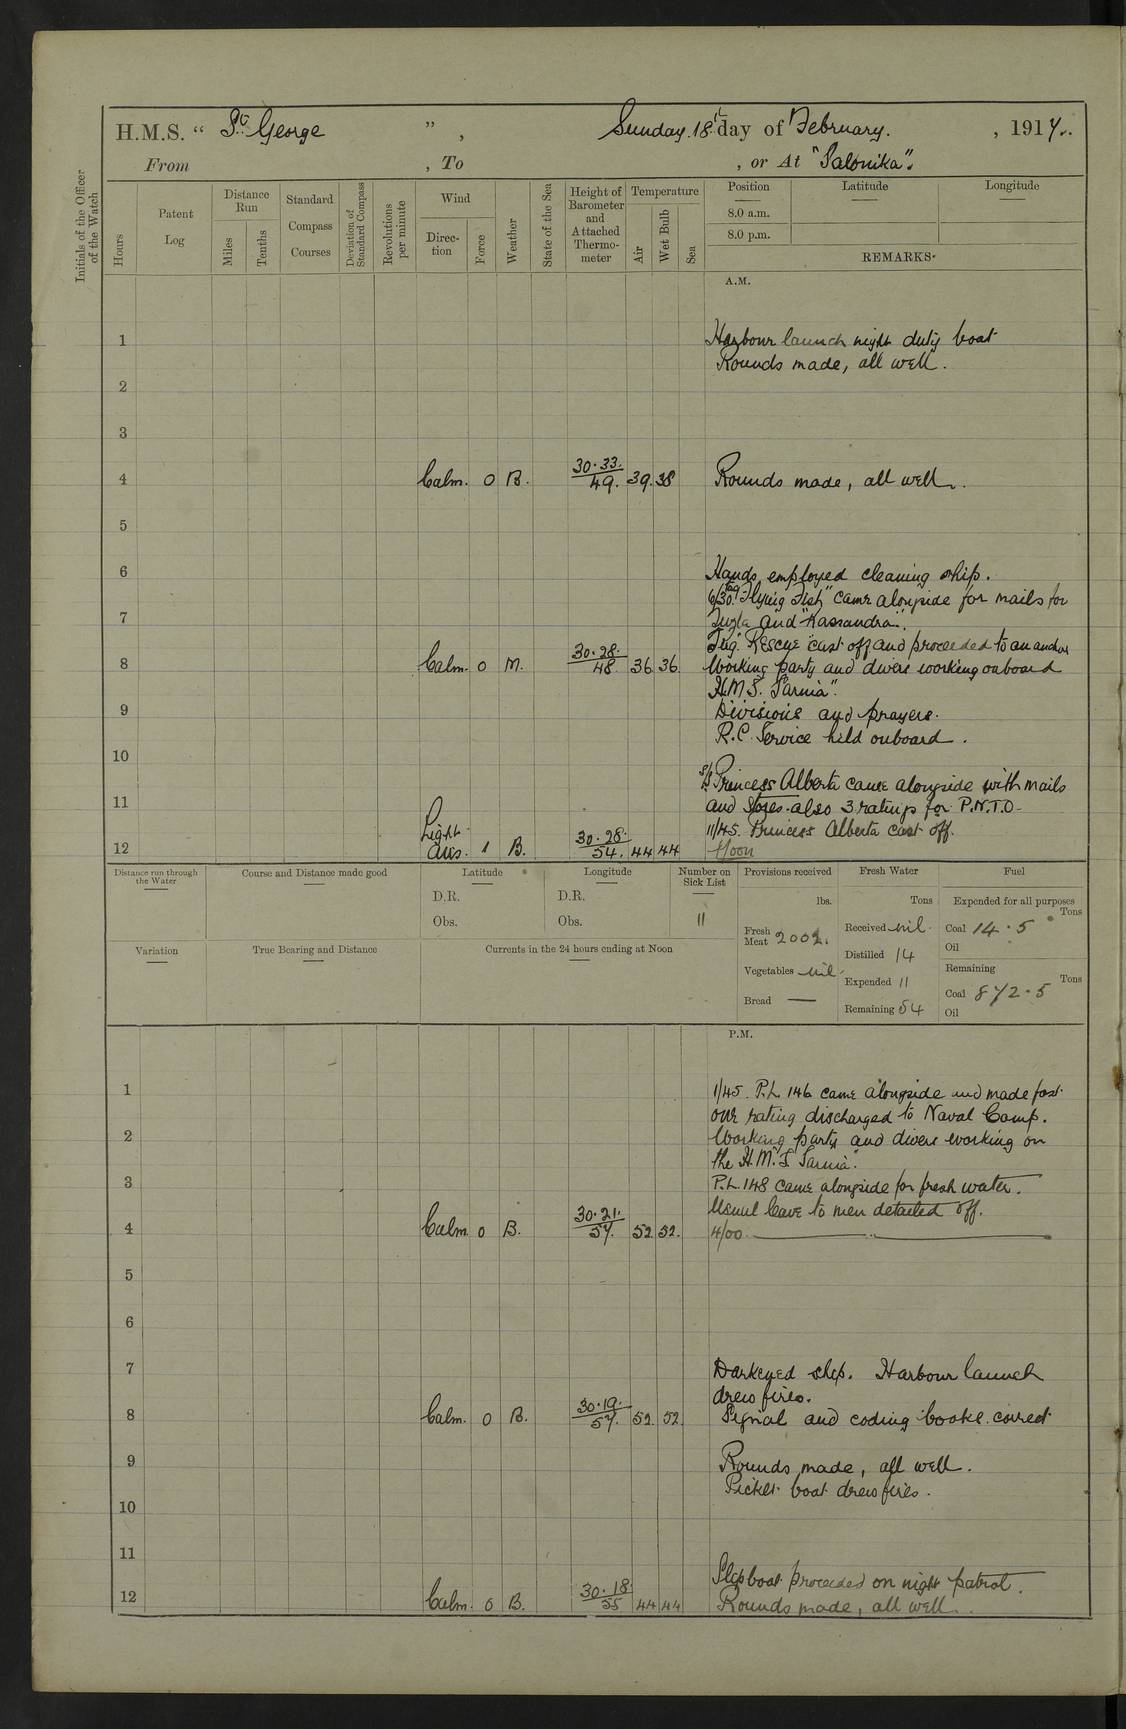 H.M.S. “ St. George ” , Sunday. 18th day of February. , 1917.
From , To , or At "Salonika".
Initials of the Officer of the Watch
Hours Patent Log Distance Run Miles Tenths Standard Compass Courses Deviation of Standard Compass Revolutions per minute Wind Direction Force Weather State of the Sea Height of Barometer and Attached Thermometer Temperature Air Wet Bulb Sea Position Latitude Longitude
8.0 a.m.
8.0 p.m.
REMARKS.
A.M.
1 Harbour launch night duty boat
Rounds made, all well.
2
3
4 Calm. 0 B. 30.33. 49. 39. 38 Rounds made, all well.
5
6 Hands employed cleaning ship.
6/30. Tug "Flying Fish" came alongside for mails for
7 and "Kassandra".
Tug "Rescue" cast off and proceeded to an anchor
8 Calm. 0 M. 30.28. 48. 36 36. Working party and divers working onboard
H.M.S. "Sarnia".
9 Divisions and prayers.
R.C. Service held onboard.
10
S/S Princess Alberta came alongside with mails
11 and stores. also 3 ratings for P.N.T.O.
Light 11/45. Princess Alberta cast off.
12 airs. 1 B. 30.28. 54. 44 44 Noon
Distance run through the Water Course and Distance made good Latitude Longitude Number on Sick List Provisions received Fresh Water Fuel
D.R. D.R. lbs. Tons Expended for all purposes Tons
Obs. Obs. 11 Fresh Meat 2002. Received nil. Coal 14.5
Oil
Variation True Bearing and Distance Currents in the 24 hours ending at Noon Distilled 14
Vegetables nil. Expended 11 Remaining Tons
Bread — Remaining 54 Coal 872.5
Oil
P.M.
1 1/45. P.L. 146 came alongside and made fast.
one rating discharged to Naval Camp.
2 Working party and divers working on
the H.M.S. "Sarnia".
3 P.L. 148 came alongside for fresh water.
Usual leave to men detailed off.
4 Calm. 0 B. 30.21. 57. 52 52. 4/00.
5
6
7 Darkened ship. Harbour launch
drew fires.
8 Calm. 0 B. 30.19. 57. 52. 52. Signal and coding books correct.
9 Rounds made, all well.
Picket boat drew fires.
10
11
Slop boat proceeded on night patrol.
12 Calm. 0 B. 30.18. 55 44 44 Rounds made, all well.